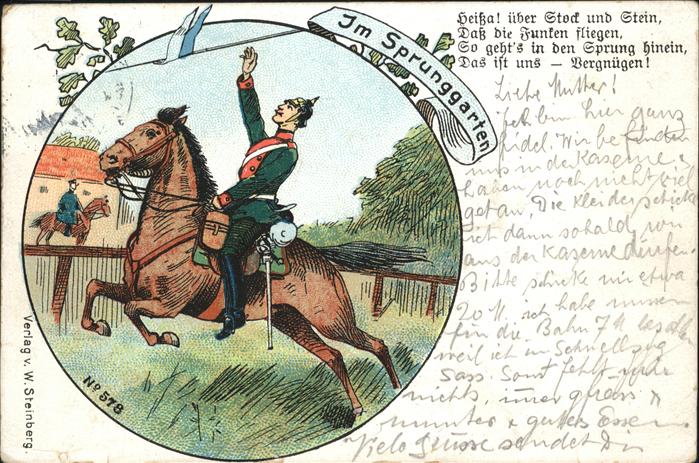 Im Sprunggarten
Heißa! über Stock und Stein,
Daß die Funken fliegen,
So geht's in den Sprung hinein,
Das ist uns — Vergnügen!
Liebe Mutter!
bin hier ganz
fidel. Wir befinden
uns in der Kaserne &
haben noch nicht viel
getan, Die Kleider schicke
ich dann sobald wir
aus der Kaserne dürfen.
Bitte schicke mir etwa
20 M. ich habe müssen
für die Bahn 7 M
weil ich im Schnellzug
sass. Sonst fehlt mir
nichts, immer
munter & gutes Essen.
Viele Grüsse sendet Dir
No 578
Verlag v. W. Steinberg.